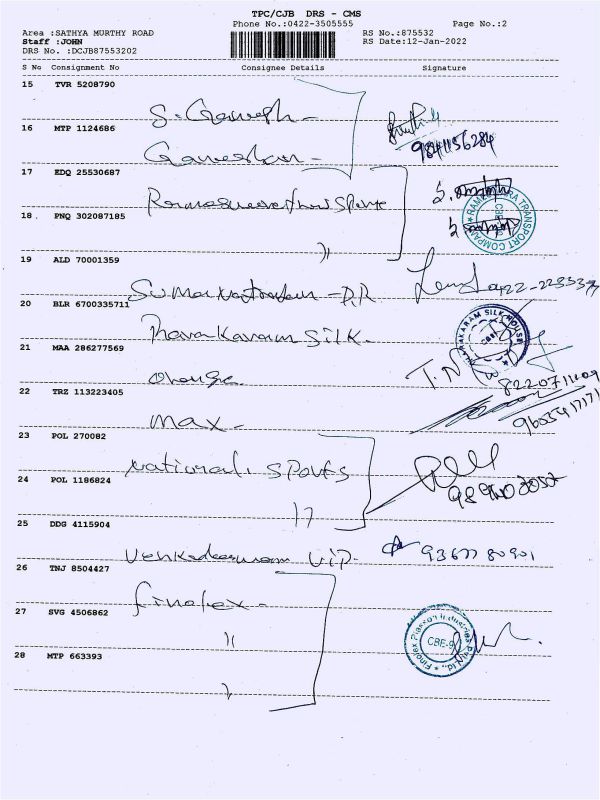 TPC/CJB DRS - CMS
Phone No.:0422-3505555 Page No.:2
Area :SATHYA MURTHY ROAD RS No.:875532
Staff :JOHN RS Date:12-Jan-2022
DRS No. :DCJB87553202
S No Consignment No Consignee Details Signature
15 TVR 5208790
S. Ganesh -
16 MTP 1124686
9841156284
Ganeshan -
17 EDQ 25530687
Rameshwaram Sports
RAMESHWARA TRANSPORT COMPANY CBE
18 . PNQ 302087185
"
19 ALD 70001359
0422-225537
20 BLR 6700335711
Tharakaram Silk -
THARAKARAM SILK HOUSE
21 MAA 286277569
T.N
Orange
8220711109
22 TRZ 113223405
Max -
9603417171
23 POL 270082
National. Sports
24 POL 1186824
"
25 DDG 4115904
Venkadeswaram VIP - 9367780901
26 TNJ 8504427
Finolex -
27 SVG 4506862
"
Finolex Plasson Industries Pvt. Ltd. CBE-9
28 MTP 663393
"